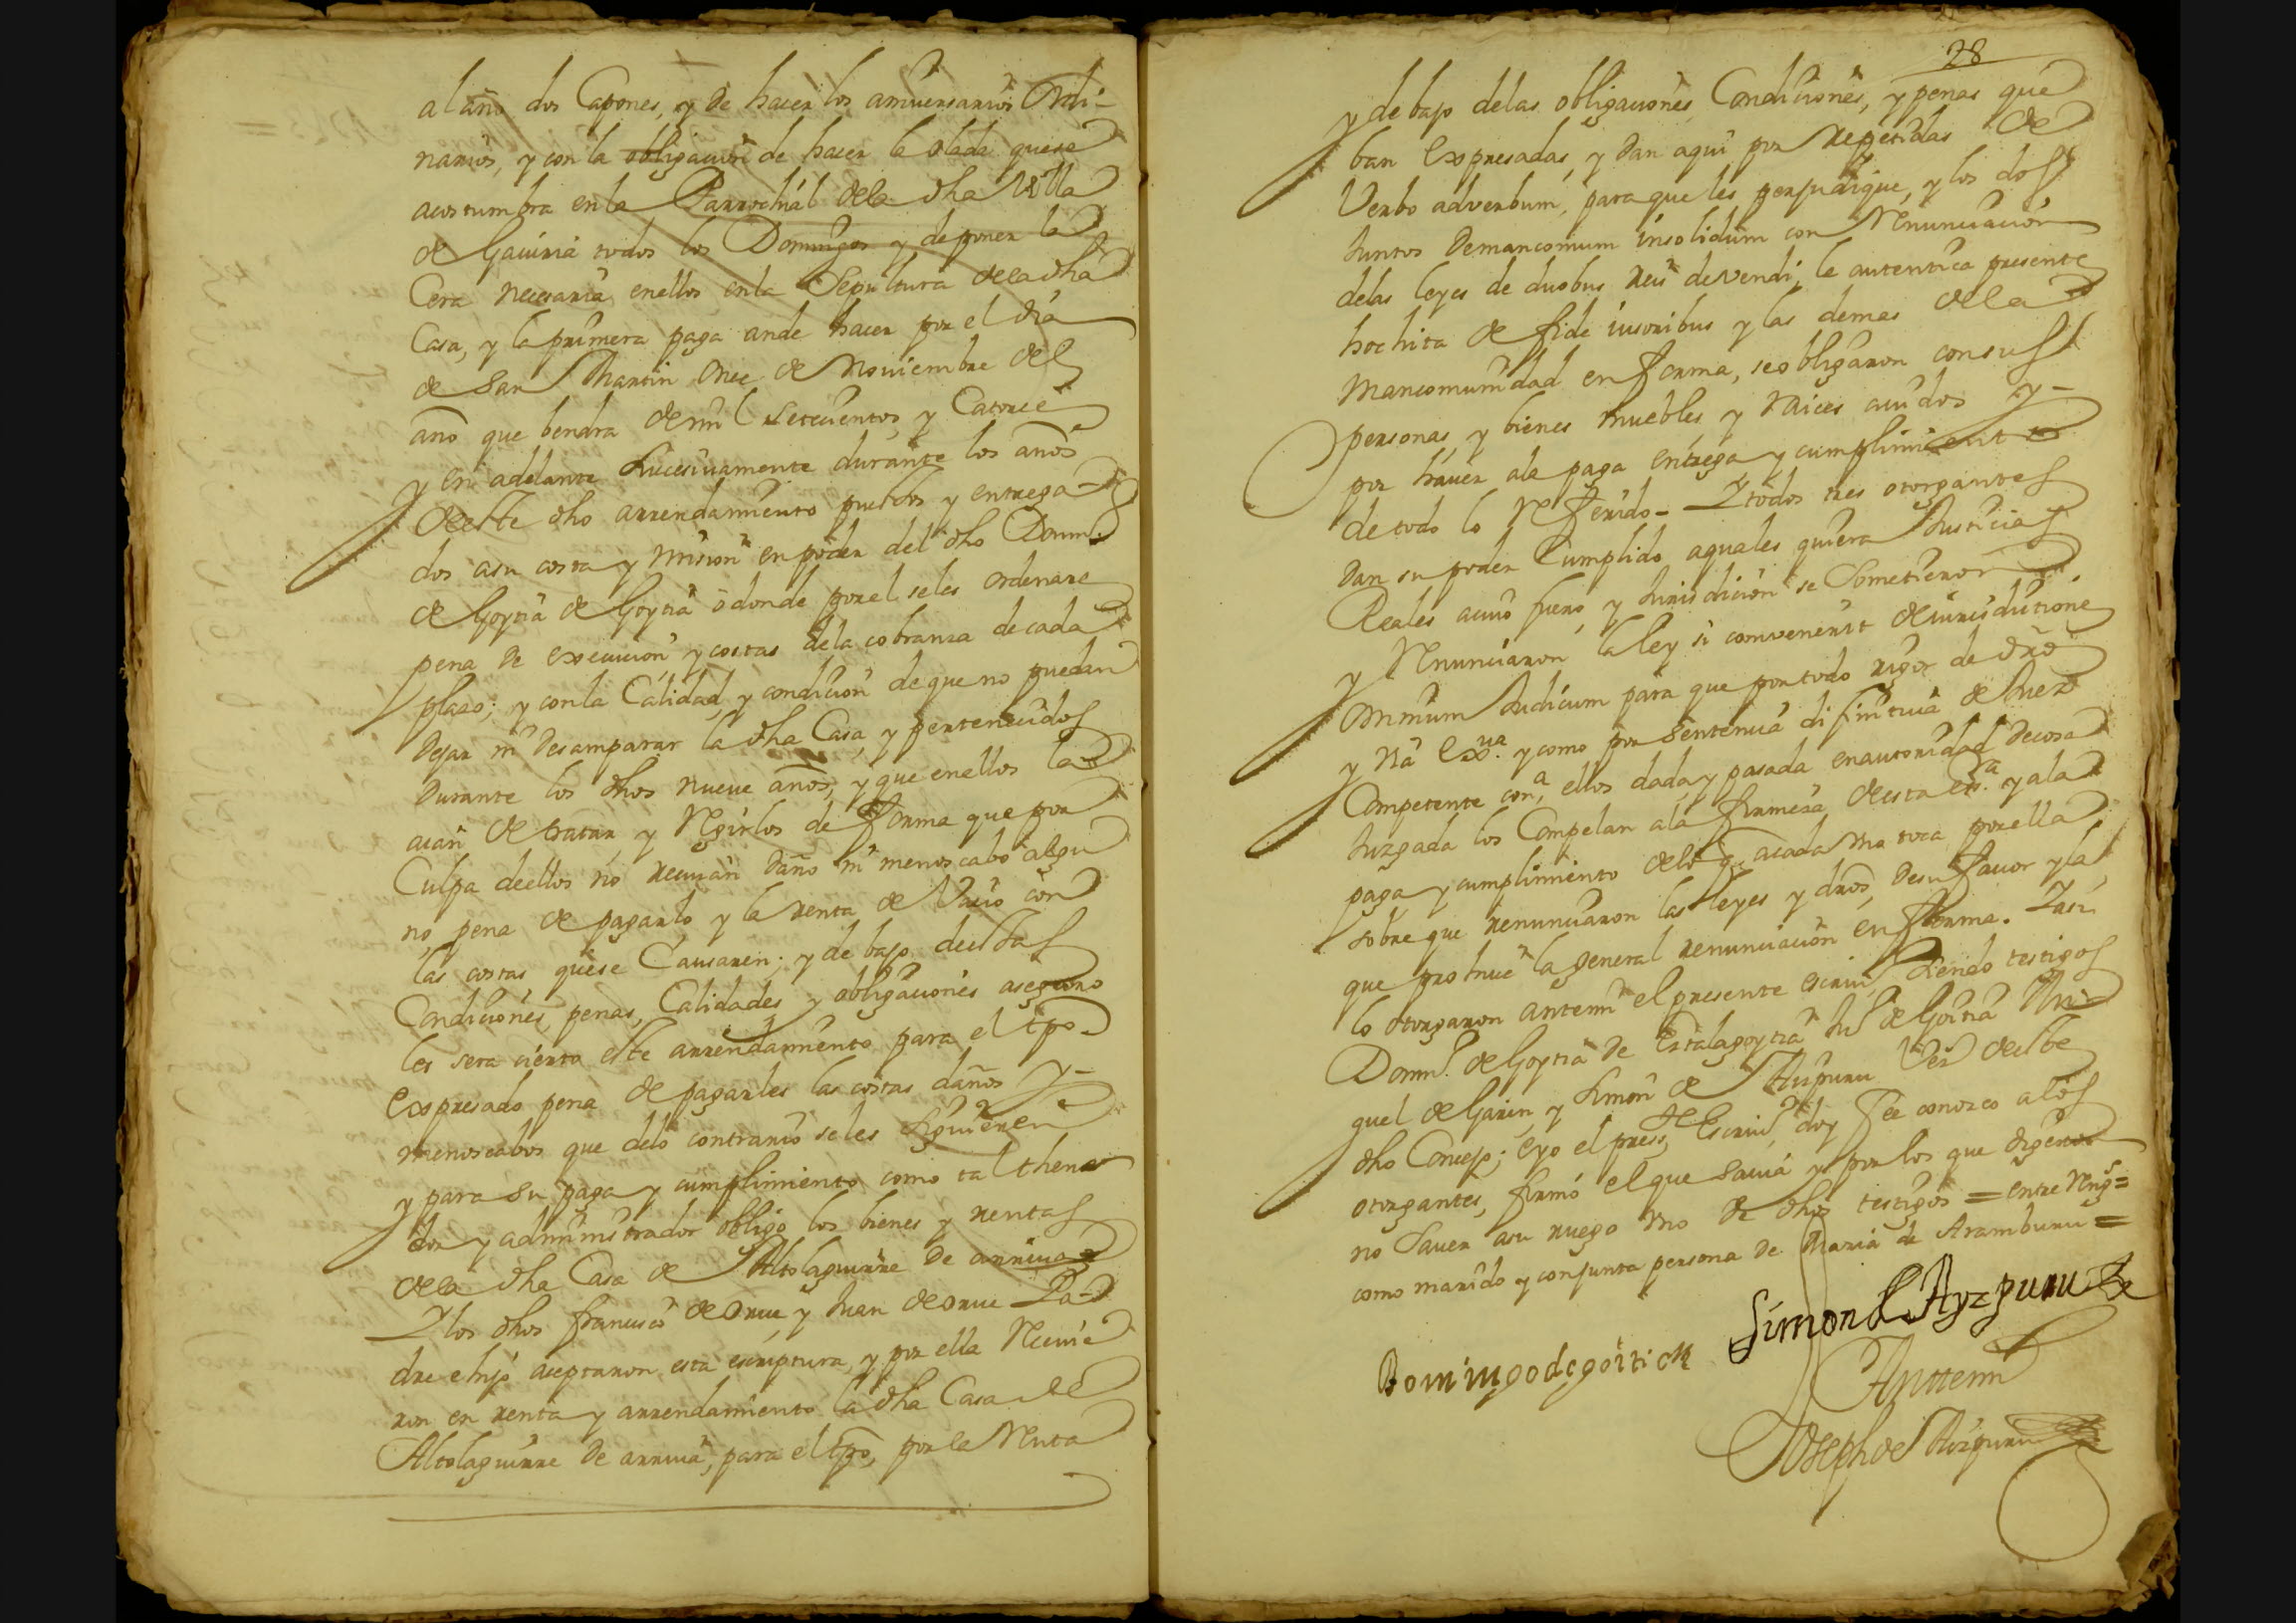 al año dos Capones, y de hacer los anniversarios Ordi-
narios, y con la obligacion de hacer la olada que se
acostumbra en la Parrochial dela dha Villa
de Gaviria todos los Domingos y de poner la
Cera necesaria enellos en la Sepultura dela dha
Casa, y la primera paga ande hacer por el dia
de San Martin Once de Noviembre del
año que bendra de mil Setecientos y Catorce
y en adelante Sucesivamente durante los años
deste dho arrendamiento puestos y entrega-
dos asu costa y mision en poder del dho Domin.
de Goytia de Goytia o donde por el seles ordenare
pena de execucion y costas dela cobranza de cada
plazo; y con la Calidad, y condicion de que no puedan
dejar ni desamparar la dha Casa, y pertenecidos
durante los dhos nueve años, y que enellos la
aian de tratar, y Regirlos de forma que por
Culpa deellos no recivan daño ni menoscabo algu
no, pena de pagarlo y la renta de Vacio con
las costas que se Causaren; y de bajo deestas
Condiciones, penas, Calidades y obligaciones aseguro
les sera cierto este arrendamiento para el tpo
expresado pena de pagarles las costas daños y-
menoscabos que delo contrario seles Siguieren
y para su paga y cumplimiento como tal thene
dor y administrador obligo los bienes y rentas
dela dha Casa de Altolaguirre de arriva
Y los dhos francisco de Orue y Juan de orue Pa-
dre e hijo aceptaron esta escriptura, y por ella Recivie
ron en renta y arrendamiento la dha Casa de
Altolaguirre de arriva, para el tpo, por la Renta
28
y debajo delas obligaciones Condiciones, y penas que
ban Expresadas, y dan aqui por repetidas de
Verbo adverbum, para que les perjudique, y los dos
Juntos demancomum insolidum con Renunciacion
delas leyes de duobus reis devendi, la autentica presente
hochita de fide iusoribus y las demas dela
mancomunidad en forma, se obligaron con sus
personas, y bienes muebles, y Raices avidos y-
por haver ala paga entrega y cumplimiento
de todo lo Referido- Y todos tres otorgantes
dan su poder Cumplido aquales quiera Justicias
Reales acuio fuero, y Jurisdicion se Sometieron
y Renunciaron la ley si convenerit de iurisdictione
Omnium Judicum para que por todo rigor de dro
y Via Exva. y como por Sentencia difinitiva de Juez
Competente contra ellos dada y pasada en autoridad de cosa
Juzgada los Compelan ala firmeza deesta esra. y ala
paga y cumplimiento delo q. acada vno toca por ella
sobre que renunciaron las leyes y dros, de su favor y la
que prohive la general renunciacion en forma. Y asi
lo otorgaron antemi el presente escrivo. Siendo testigos
Domin. de Goytia de Estalagoytia Ju. de Goitia Mi-
guel de Garin, y Simon de Aizpuru Vez. deeste
dho Concejo; e yo el press.te Escrivo. doy fee conozco alos
otorgantes, firmo el que savia y por los que digeron
no Saver asu ruego vno de dhos testigos = entre Rengs=
como marido y conjunta persona de Maria de Aramburu =
Simon de Ayzpuru
Domingo de goitia
Antemi
Joseph de Aizpuru